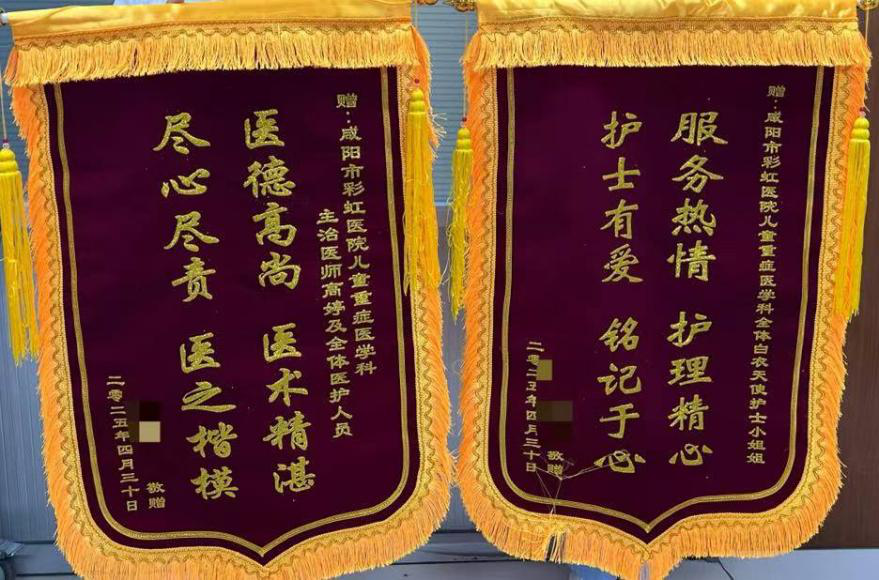 赠：咸阳市彩虹医院儿童重症医学科
主治医师高婷及全体医护人员
医德高尚 医术精湛
尽心尽责 医之楷模
敬赠
二零二五年四月三十日
赠：咸阳市彩虹医院儿童重症医学科全体白衣天使护士小姐姐
服务热情 护理精心
护士有爱 铭记于心
敬赠
二零二五年四月三十日